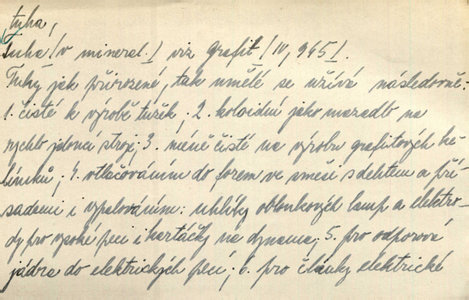 tuha,
tuha /v mineral./ viz grafit /IV, 945/.
Tuhy jak přirozené, tak umělé se užívá následovně:
1. čisté k výrobě tužek, 2. koloidní jako mazadlo na
rychlo jdoucí stroj; 3. méně čisté na výrobu grafitových ke-
límků; 4. otlačováním do forem ve směsi s dehtem a pří-
sadami i vypalováním: uhlíky obloukových lamp a elektro-
dy pro vysoké peci i kartáčky na dynama; 5. pro odporová
jádra do elektrických pecí; 6. pro články elektrické